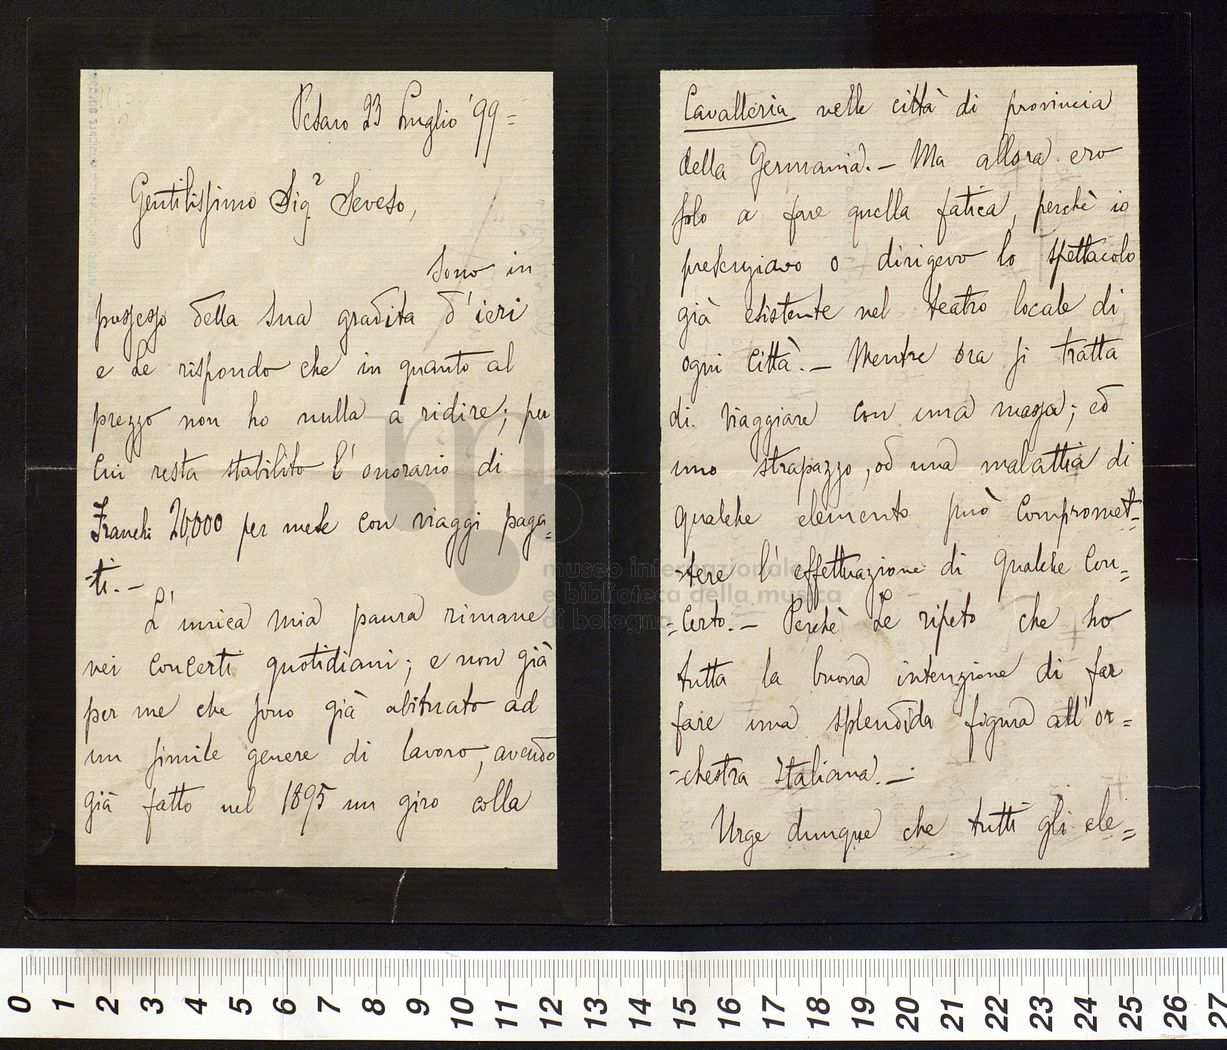 Pesaro 23 Luglio '99=
Gentilissimo Sigr Seveso,
Sono in
possesso della sua gradita d'ieri
e Le rispondo che in quanto al
prezzo non ho nulla a ridire; per
cui resta stabilito l'onorario di
Franchi per mese con viaggi paga=
ti.-
L'unica mia paura rimane
nei concerti quotidiani; e non già
per me che sono già abituato ad
un simile genere di lavoro, avendo
già fatto nel 1895 un giro colla
Cavalleria nelle città di provincia
della Germania.- Ma allora ero
solo a fare quella fatica, perchè io
o dirigevo lo spettacolo
già esistente nel teatro locale di
ogni città.- Mentre ora si tratta
di viaggiare con una massa; ed
uno strapazzo, od una malattia di
qualche elemento può compromet=
=tere l'effettuazione di qualche con=
=certo.- Perchè Le ripeto che ho
tutta la buona intenzione di far
fare una splendida figura all'or=
=chestra Italiana.-
Urge dunque che tutti gli ele=
museo internazionale
e biblioteca della musica
di bologna
0 1 2 3 4 5 6 7 8 9 10 11 12 13 14 15 16 17 18 19 20 21 22 23 24 25 26 27